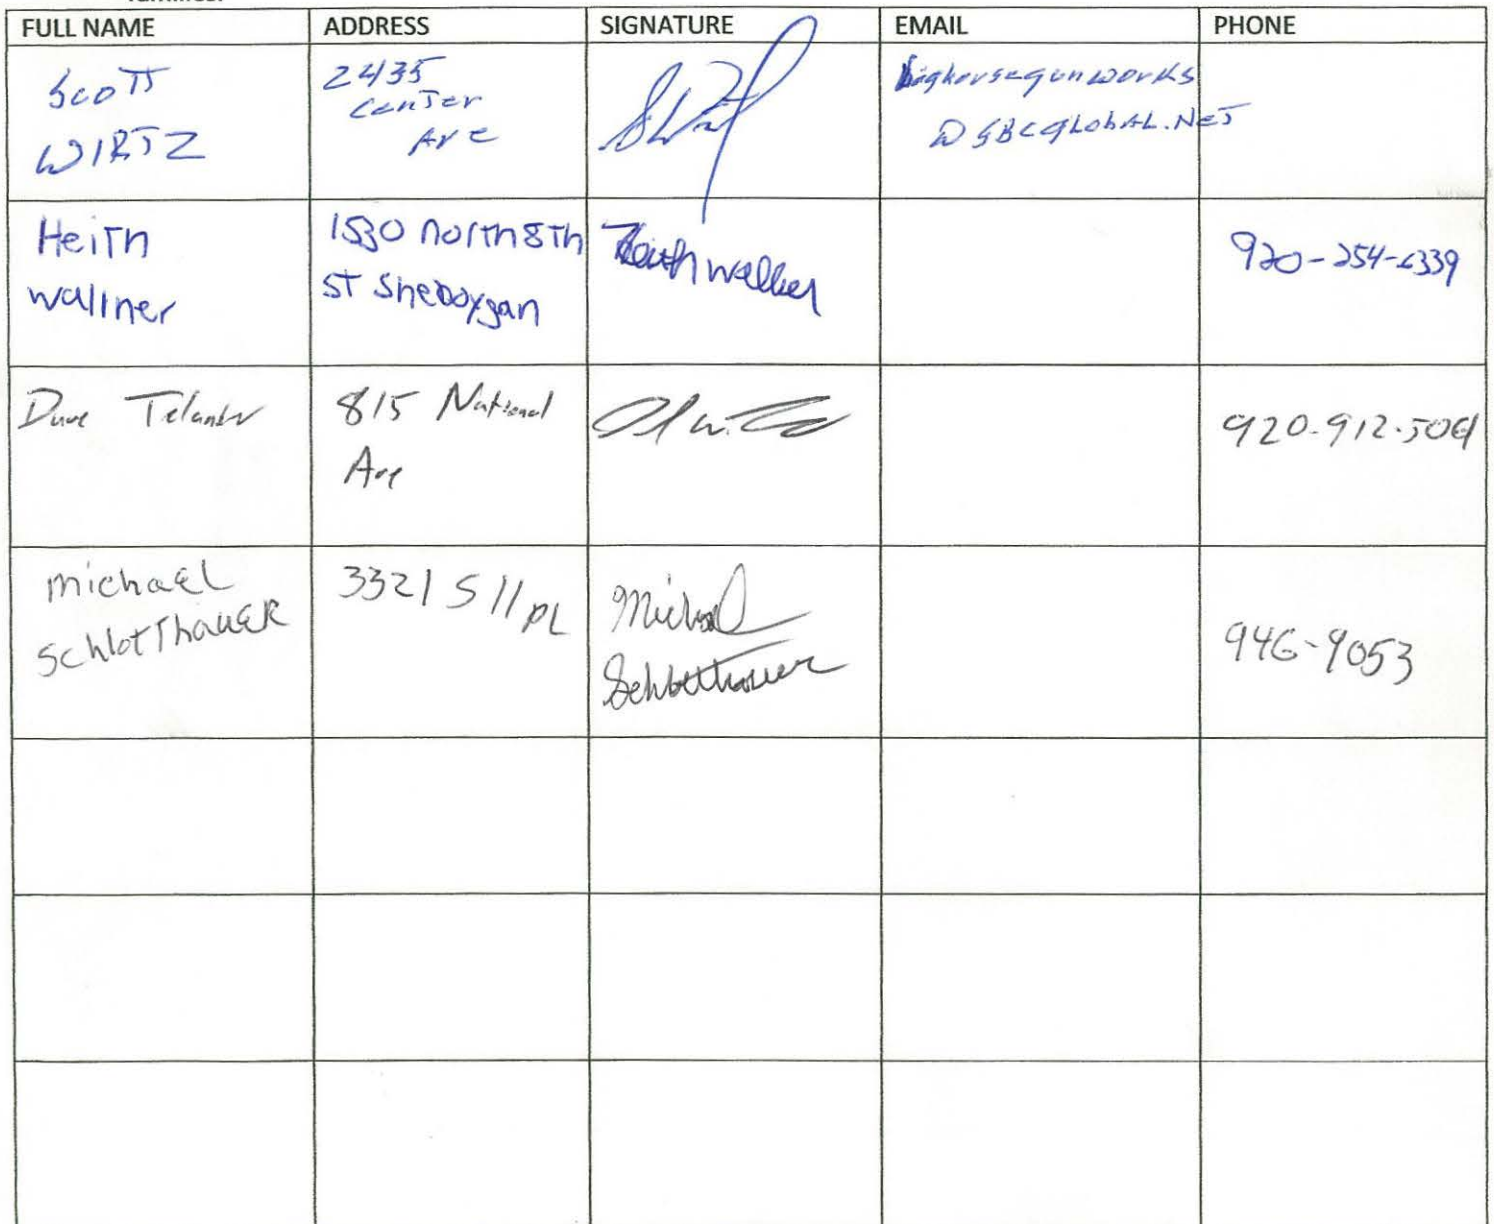 FULL NAME ADDRESS SIGNATURE EMAIL PHONE
Scott
WIRTZ
2435
Center
Ave
bighorsegunworks
@SBCGLOBAL.NET
Heith
Wallner
1530 North 8th
ST Sheboygan
920-254-6339
Dave
815 National
Ave
920-912-
michaEL
SchlotThauER
3321 S 11 PL
Michael
Schlotthauer
946-9053